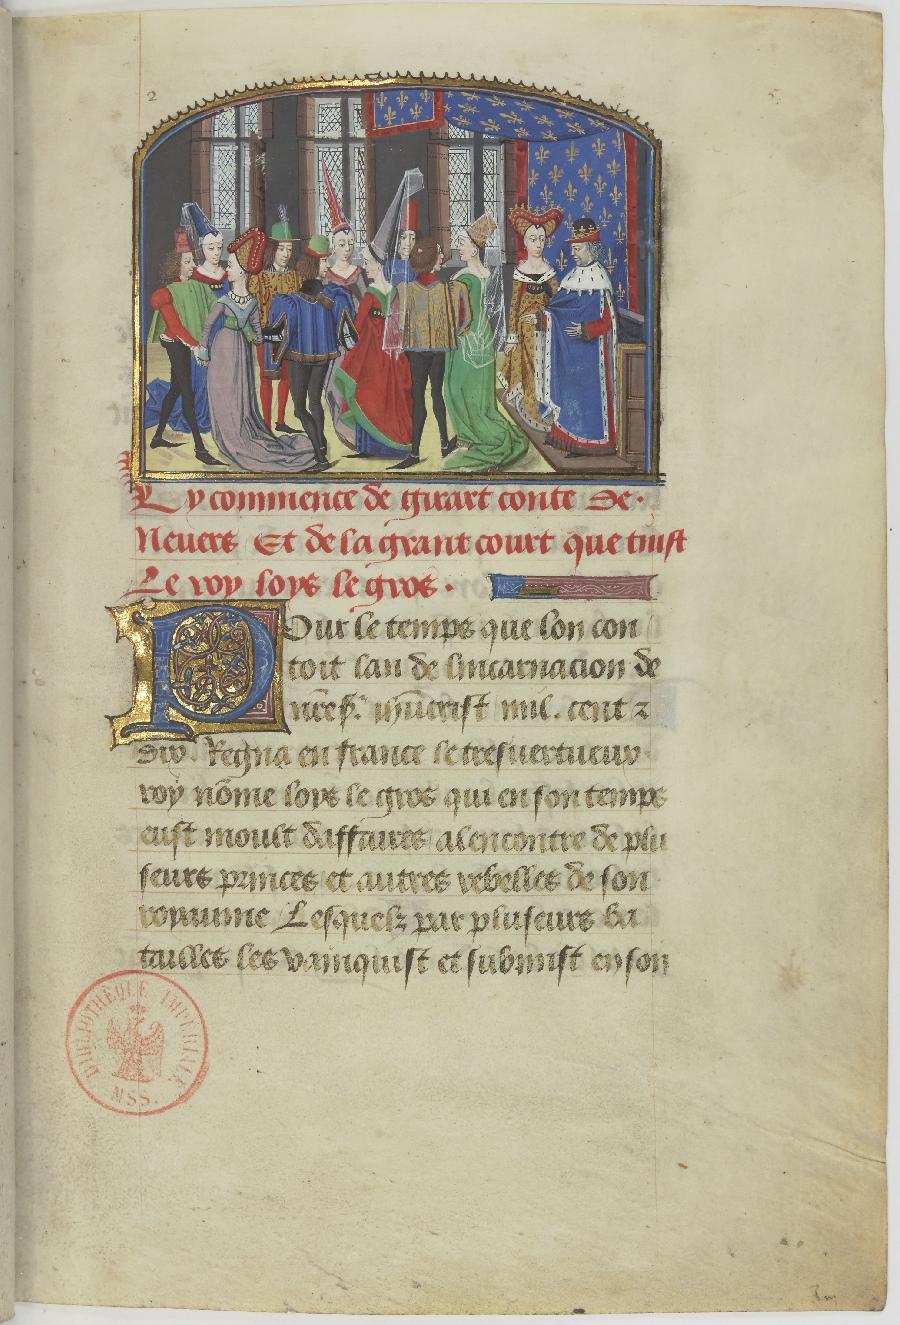 2
Cy commence de girart conte de.
Nevers Et de la grant court que tinst
Le roy loys le gros.
Pour le temps que lon con
toit lan de lincarnacion de
nr̃e sʳ. ih̃ucrist mil. cent z
Dix. Regna en france le tresvertueux
roy nõme loys le gros qui en son temps
eust moult daffaires alencontre de plu
seurs princes et autres rebelles de son
royaume Lesquelz par pluseurs ba
tailles les vainquist et submist en son
BIBLIOTHÈQUE IMPÉRIALE
MSS.